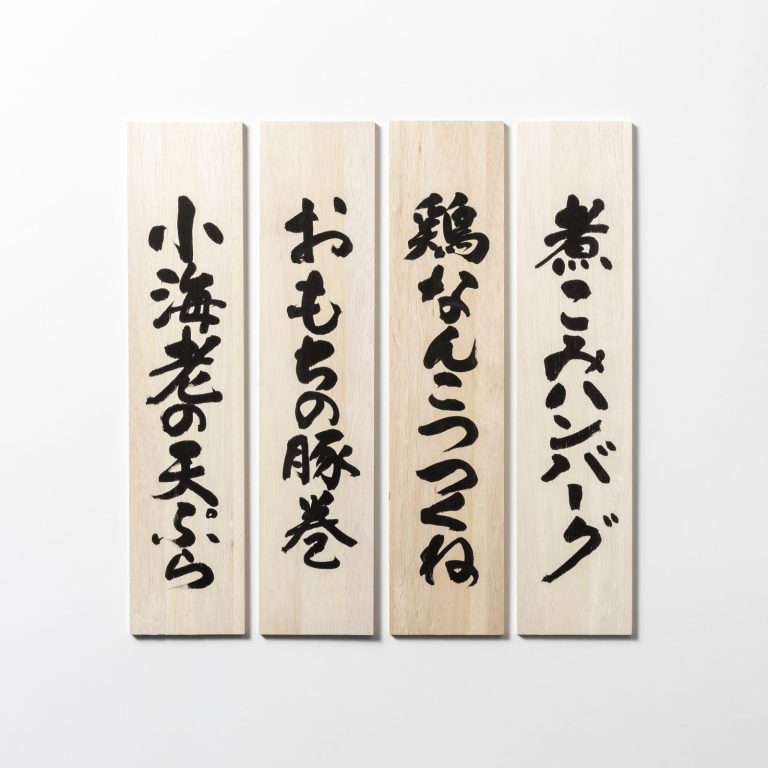 煮こみハンバーグ
鶏なんこつつくね
おもちの豚巻
小海老の天ぷら